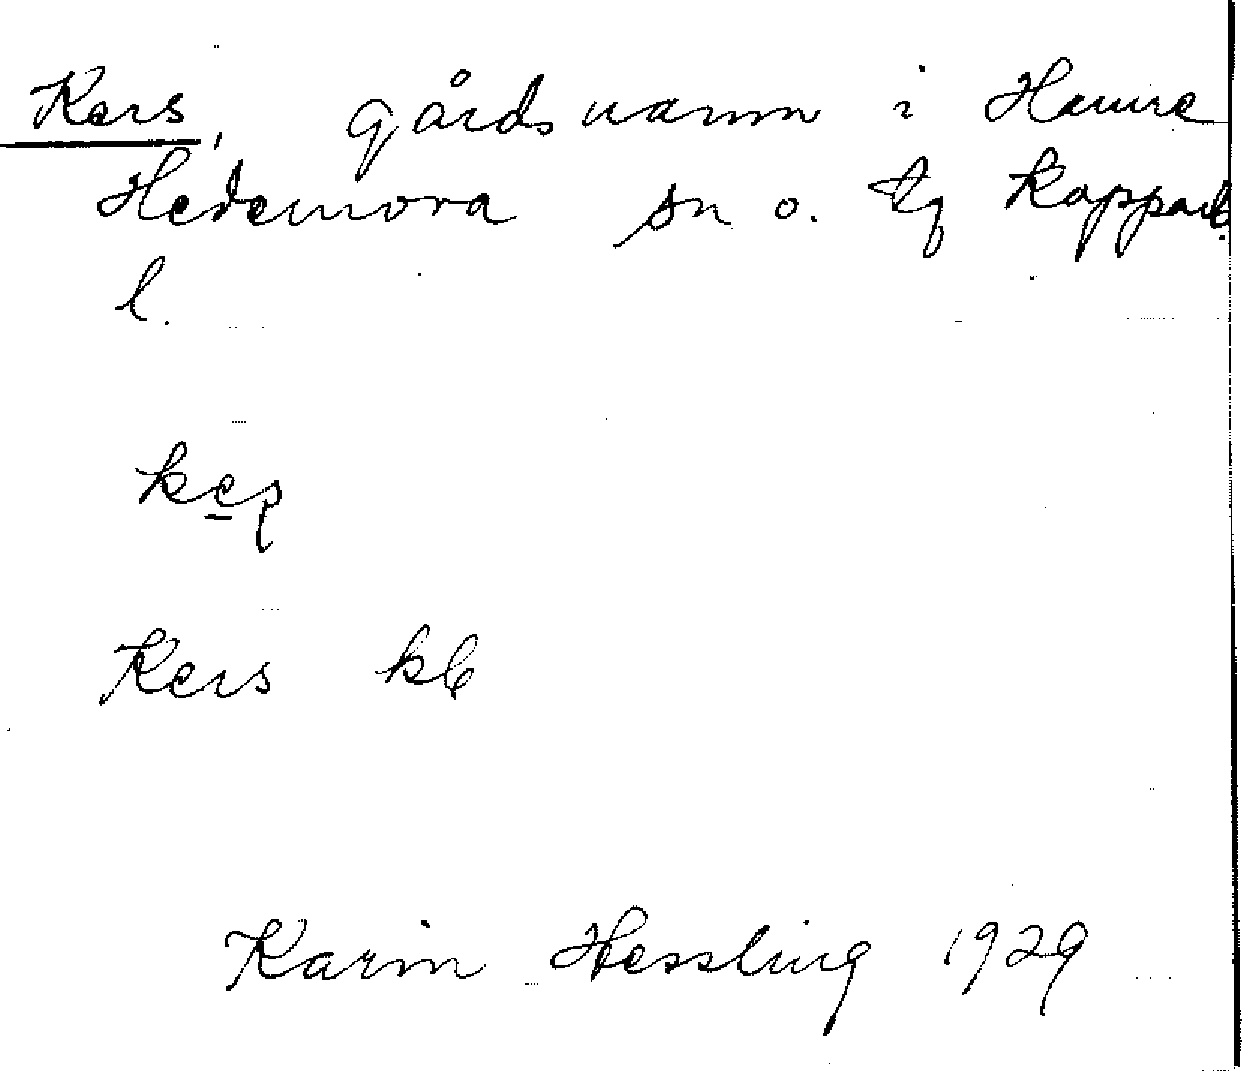 Kers, gårdsnamn i Hamre
Hedemora sn o. tg Kopparb.
l.
Kers kb
Karin Hessling 1929